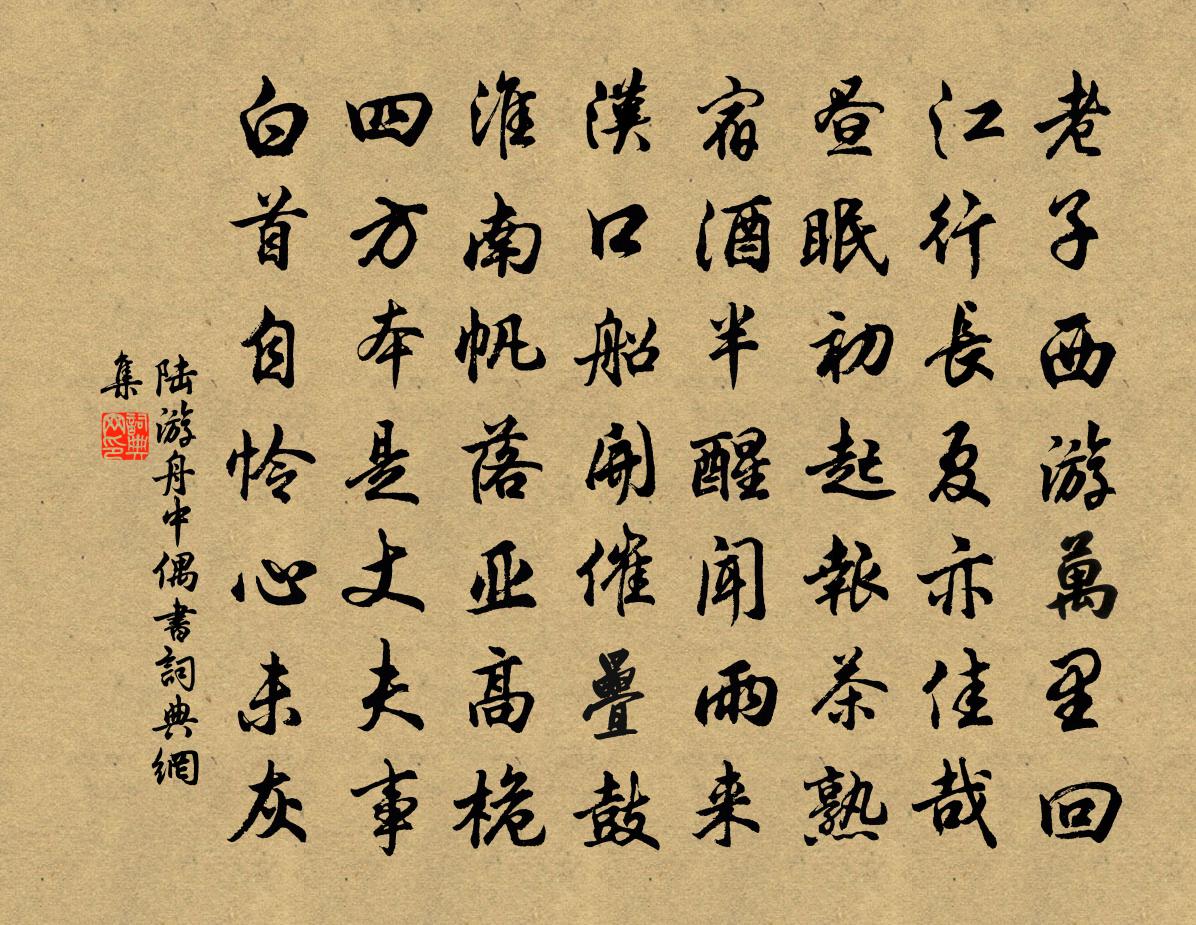 老子西游萬里回
江行長夏亦佳哉
昼眠初起報茶熟
宿酒半醒聞雨来
漢口船開催疊鼓
淮南帆落亚高桅
四方本是丈夫事
白首自怜心未灰
陆游舟中偶書詞典網
集
詞典
网印